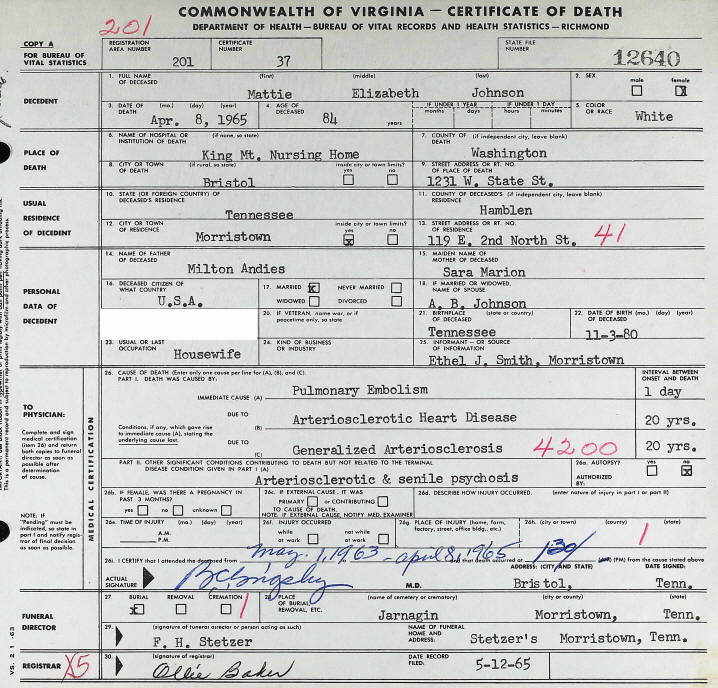 COMMONWEALTH OF VIRGINIA — CERTIFICATE OF DEATH
DEPARTMENT OF HEALTH — BUREAU OF VITAL RECORDS AND HEALTH STATISTICS — RICHMOND
201
COPY A
FOR BUREAU OF VITAL STATISTICS
REGISTRATION AREA NUMBER 201
CERTIFICATE NUMBER 37
STATE FILE NUMBER 12640
DECEDENT
1. FULL NAME OF DECEASED (first) (middle) (last)
Mattie Elizabeth Johnson
2. SEX male female X
3. DATE OF DEATH (mo.) (day) (year)
Apr. 8, 1965
4. AGE OF DECEASED 84 years
IF UNDER 1 YEAR months days
IF UNDER 1 DAY hours minutes
5. COLOR OR RACE White
PLACE OF DEATH
6. NAME OF HOSPITAL OR INSTITUTION OF DEATH (if none, so state)
King Mt. Nursing Home
7. COUNTY OF DEATH (if independent city, leave blank)
Washington
8. CITY OR TOWN OF DEATH (if rural, so state) inside city or town limits? yes no
Bristol
9. STREET ADDRESS OR RT. NO. OF PLACE OF DEATH
1231 W. State St.
USUAL RESIDENCE OF DECEDENT
10. STATE (OR FOREIGN COUNTRY) OF DECEASED'S RESIDENCE
Tennessee
11. COUNTY OF DECEASED'S RESIDENCE (if independent city, leave blank)
Hamblen
12. CITY OR TOWN OF RESIDENCE inside city or town limits? yes X no
Morristown
13. STREET ADDRESS OR RT. NO. OF RESIDENCE
119 E. 2nd North St. 41
PERSONAL DATA OF DECEDENT
14. NAME OF FATHER OF DECEASED
Milton Andies
15. MAIDEN NAME OF MOTHER OF DECEASED
Sara Marion
16. DECEASED CITIZEN OF WHAT COUNTRY
U.S.A.
17. MARRIED X NEVER MARRIED
WIDOWED DIVORCED
18. IF MARRIED OR WIDOWED, NAME OF SPOUSE
A. B. Johnson
20. IF VETERAN, name war, or if peacetime only, so state
21. BIRTHPLACE OF DECEASED (state or country)
Tennessee
22. DATE OF BIRTH (mo.) (day) (year) OF DECEASED
11-3-80
23. USUAL OR LAST OCCUPATION Housewife
24. KIND OF BUSINESS OR INDUSTRY
25. INFORMANT - OR SOURCE OF INFORMATION
Ethel J. Smith, Morristown
TO PHYSICIAN:
Complete and sign medical certification (item 26) and return both copies to funeral director as soon as possible after determination of cause.
NOTE: If "Pending" must be indicated, so state in part I and notify registrar of final decision as soon as possible.
MEDICAL CERTIFICATION
26. CAUSE OF DEATH (Enter only one cause per line for (A), (B), and (C).
PART I. DEATH WAS CAUSED BY:
INTERVAL BETWEEN ONSET AND DEATH
IMMEDIATE CAUSE (A) Pulmonary Embolism 1 day
Conditions, if any, which gave rise to immediate cause (A), stating the underlying cause last.
DUE TO (B) Arteriosclerotic Heart Disease 20 yrs.
DUE TO (C) Generalized Arteriosclerosis 4200 20 yrs.
PART II. OTHER SIGNIFICANT CONDITIONS CONTRIBUTING TO DEATH BUT NOT RELATED TO THE TERMINAL DISEASE CONDITION GIVEN IN PART I (A)
Arteriosclerotic & senile psychosis
26a. AUTOPSY? yes no X
AUTHORIZED BY:
26b. IF FEMALE, WAS THERE A PREGNANCY IN PAST 3 MONTHS?
yes no unknown
26c. IF EXTERNAL CAUSE, IT WAS
PRIMARY or CONTRIBUTING
TO CAUSE OF DEATH.
NOTE. IF EXTERNAL CAUSE, NOTIFY MED. EXAMINER
26d. DESCRIBE HOW INJURY OCCURRED. (enter nature of injury in part I or part II)
26e. TIME OF INJURY (mo.) (day) (year)
A.M.
P.M.
26f. INJURY OCCURRED
while at work not while at work
26g. PLACE OF INJURY (home, farm, factory, street, office bldg., etc.)
26h. (city or town) (county) (state)
26i. I CERTIFY that I attended the deceased from May. 1, 1963 - April 8, 1965 and that death occurred at 130 (PM) from the cause stated above
ACTUAL SIGNATURE M.D.
ADDRESS: (CITY AND STATE) DATE SIGNED:
Bristol, Tenn.
FUNERAL DIRECTOR
27. BURIAL X REMOVAL CREMATION
28. PLACE OF BURIAL, REMOVAL, ETC. (name of cemetery or crematory) (city or county) (state)
Jarnagin Morristown, Tenn.
29. (signature of funeral director or person acting as such)
F. H. Stetzer
NAME OF FUNERAL HOME AND ADDRESS: Stetzer's Morristown, Tenn.
REGISTRAR
30. (signature of registrar)
Ollie Baker
DATE RECORD FILED: 5-12-65
VS. 2 1 -63